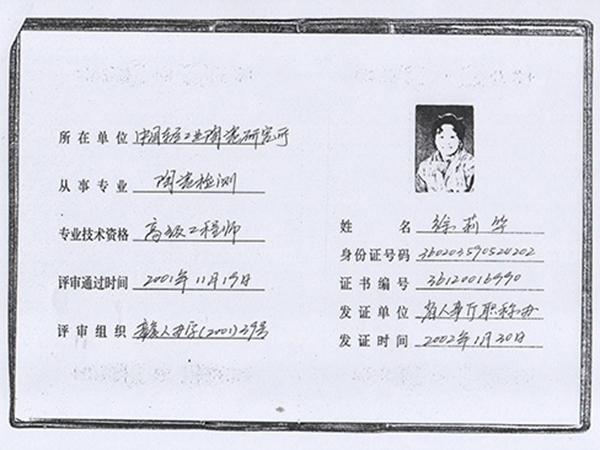 所在单位 中国轻工业陶瓷研究所
从事专业 陶瓷检测
专业技术资格 高级工程师
评审通过时间 2001年11月19日
评审组织 人办字(2001)39号
姓名 徐莉华
身份证号码 360203590524202
证书编号 36120016990
发证单位 省人事厅职称办
发证时间 2002年1月30日